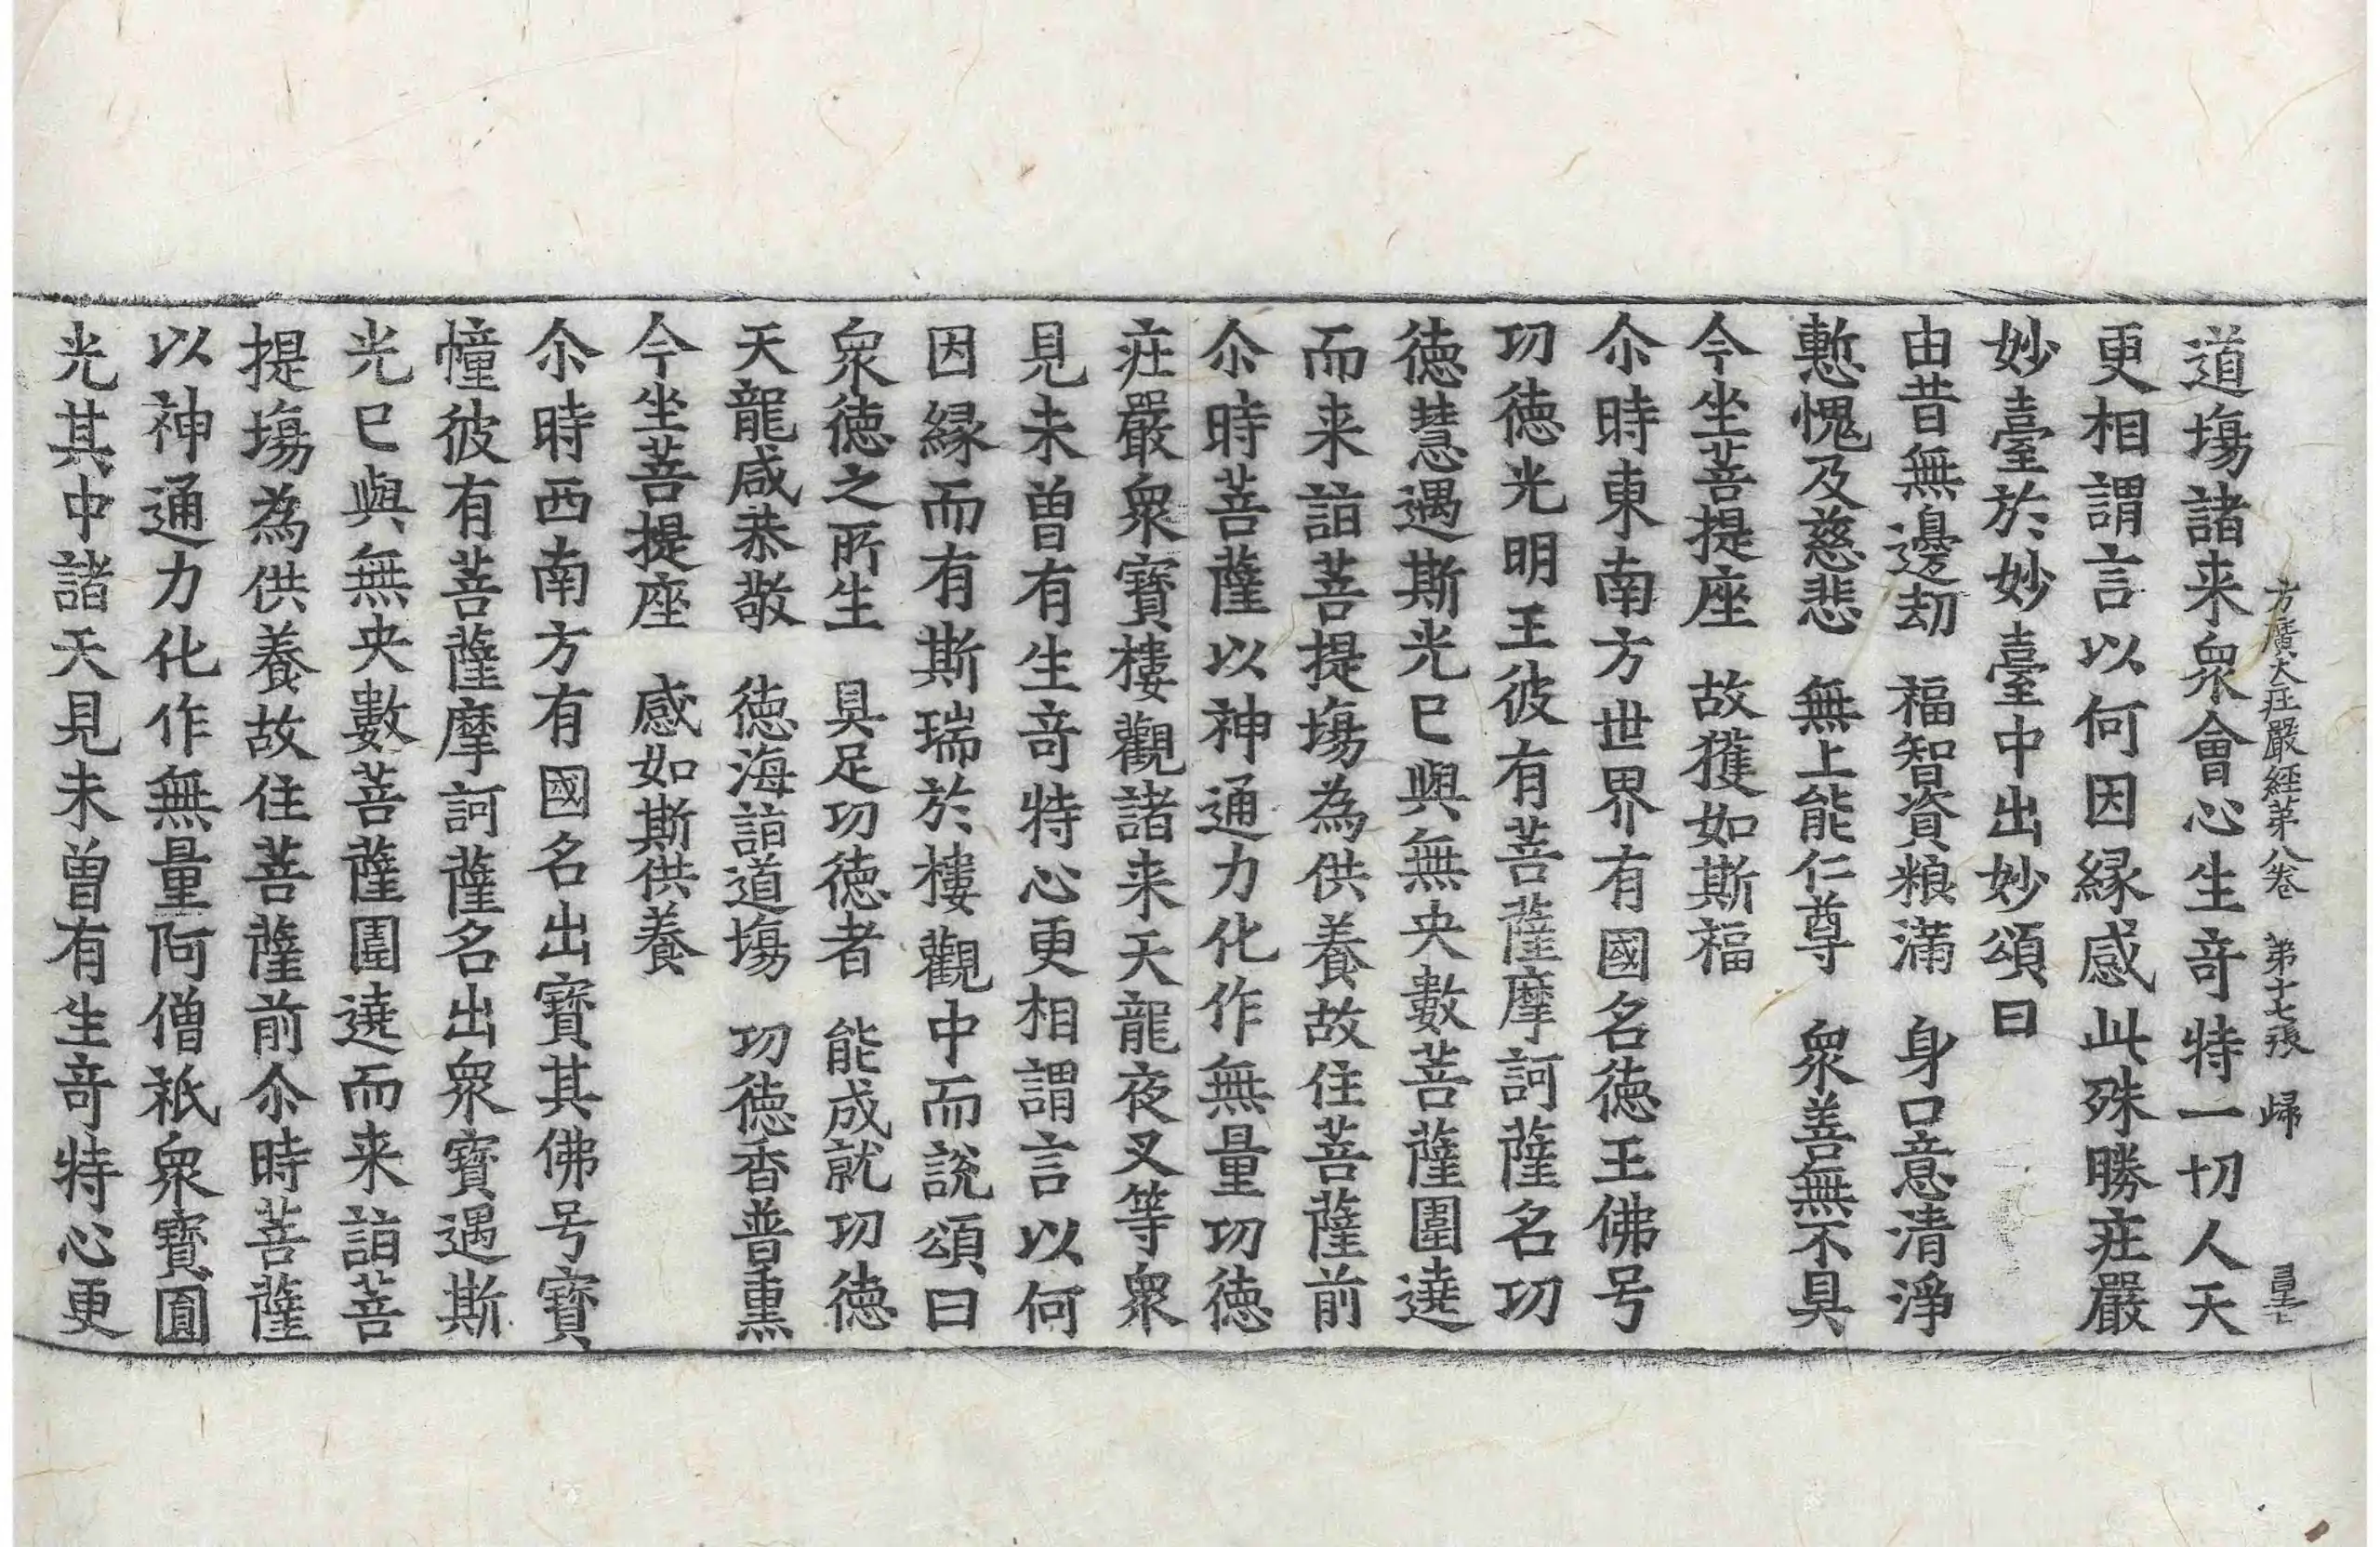 方廣大庄嚴経第八卷 第十七張 歸
道塲諸来衆會心生竒特一切人天
更相謂言以何因縁感此殊勝庄嚴
妙臺於妙臺中出妙頌曰
由昔無邊劫 福智資粮滿 身口意清淨
慙愧及慈悲 無上能仁尊 衆善無不具
今坐菩提座 故獲如斯福
尒時東南方世界有國名德王佛号
功德光明王彼有菩薩摩訶薩名功
德慧遇斯光已與無央數菩薩圍遶
而来詣菩提塲為供養故住菩薩前
尒時菩薩以神通力化作無量功德
庄嚴衆寶樓觀諸来天龍夜叉等衆
見未曽有生竒特心更相謂言以何
因縁而有斯瑞於樓觀中而說頌曰
衆德之所生 具足功德者 能成就功德
天龍咸恭敬 德海詣道塲 功德香普熏
今坐菩提座 感如斯供養
尒時西南方有國名出寶其佛号寶
幢彼有菩薩摩訶薩名出衆寶遇斯
光已與無央數菩薩圍遶而来詣菩
提塲為供養故住菩薩前尒時菩薩
以神通力化作無量阿僧祇衆寶圓
光其中諸天見未曽有生竒特心更